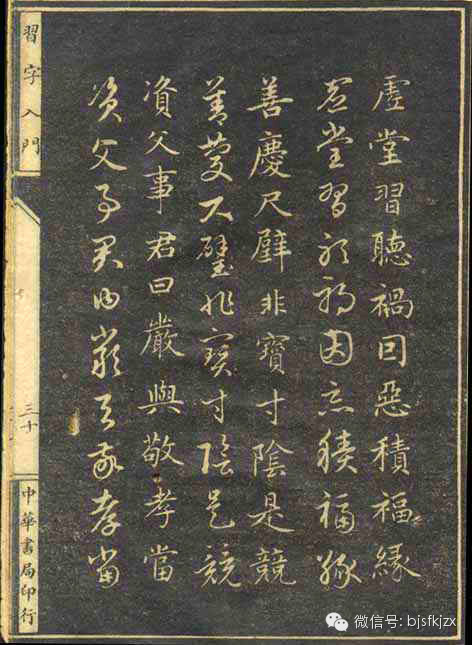 虛堂習聽禍因惡積福緣
虛堂習聽禍因惡積福緣
善慶尺璧非寶寸陰是競
善慶尺璧非寶寸陰是競
資父事君曰嚴與敬孝當
資父事君曰嚴與敬孝當
習字入門
三十
中華書局印行
微信号: bjsfkjzx